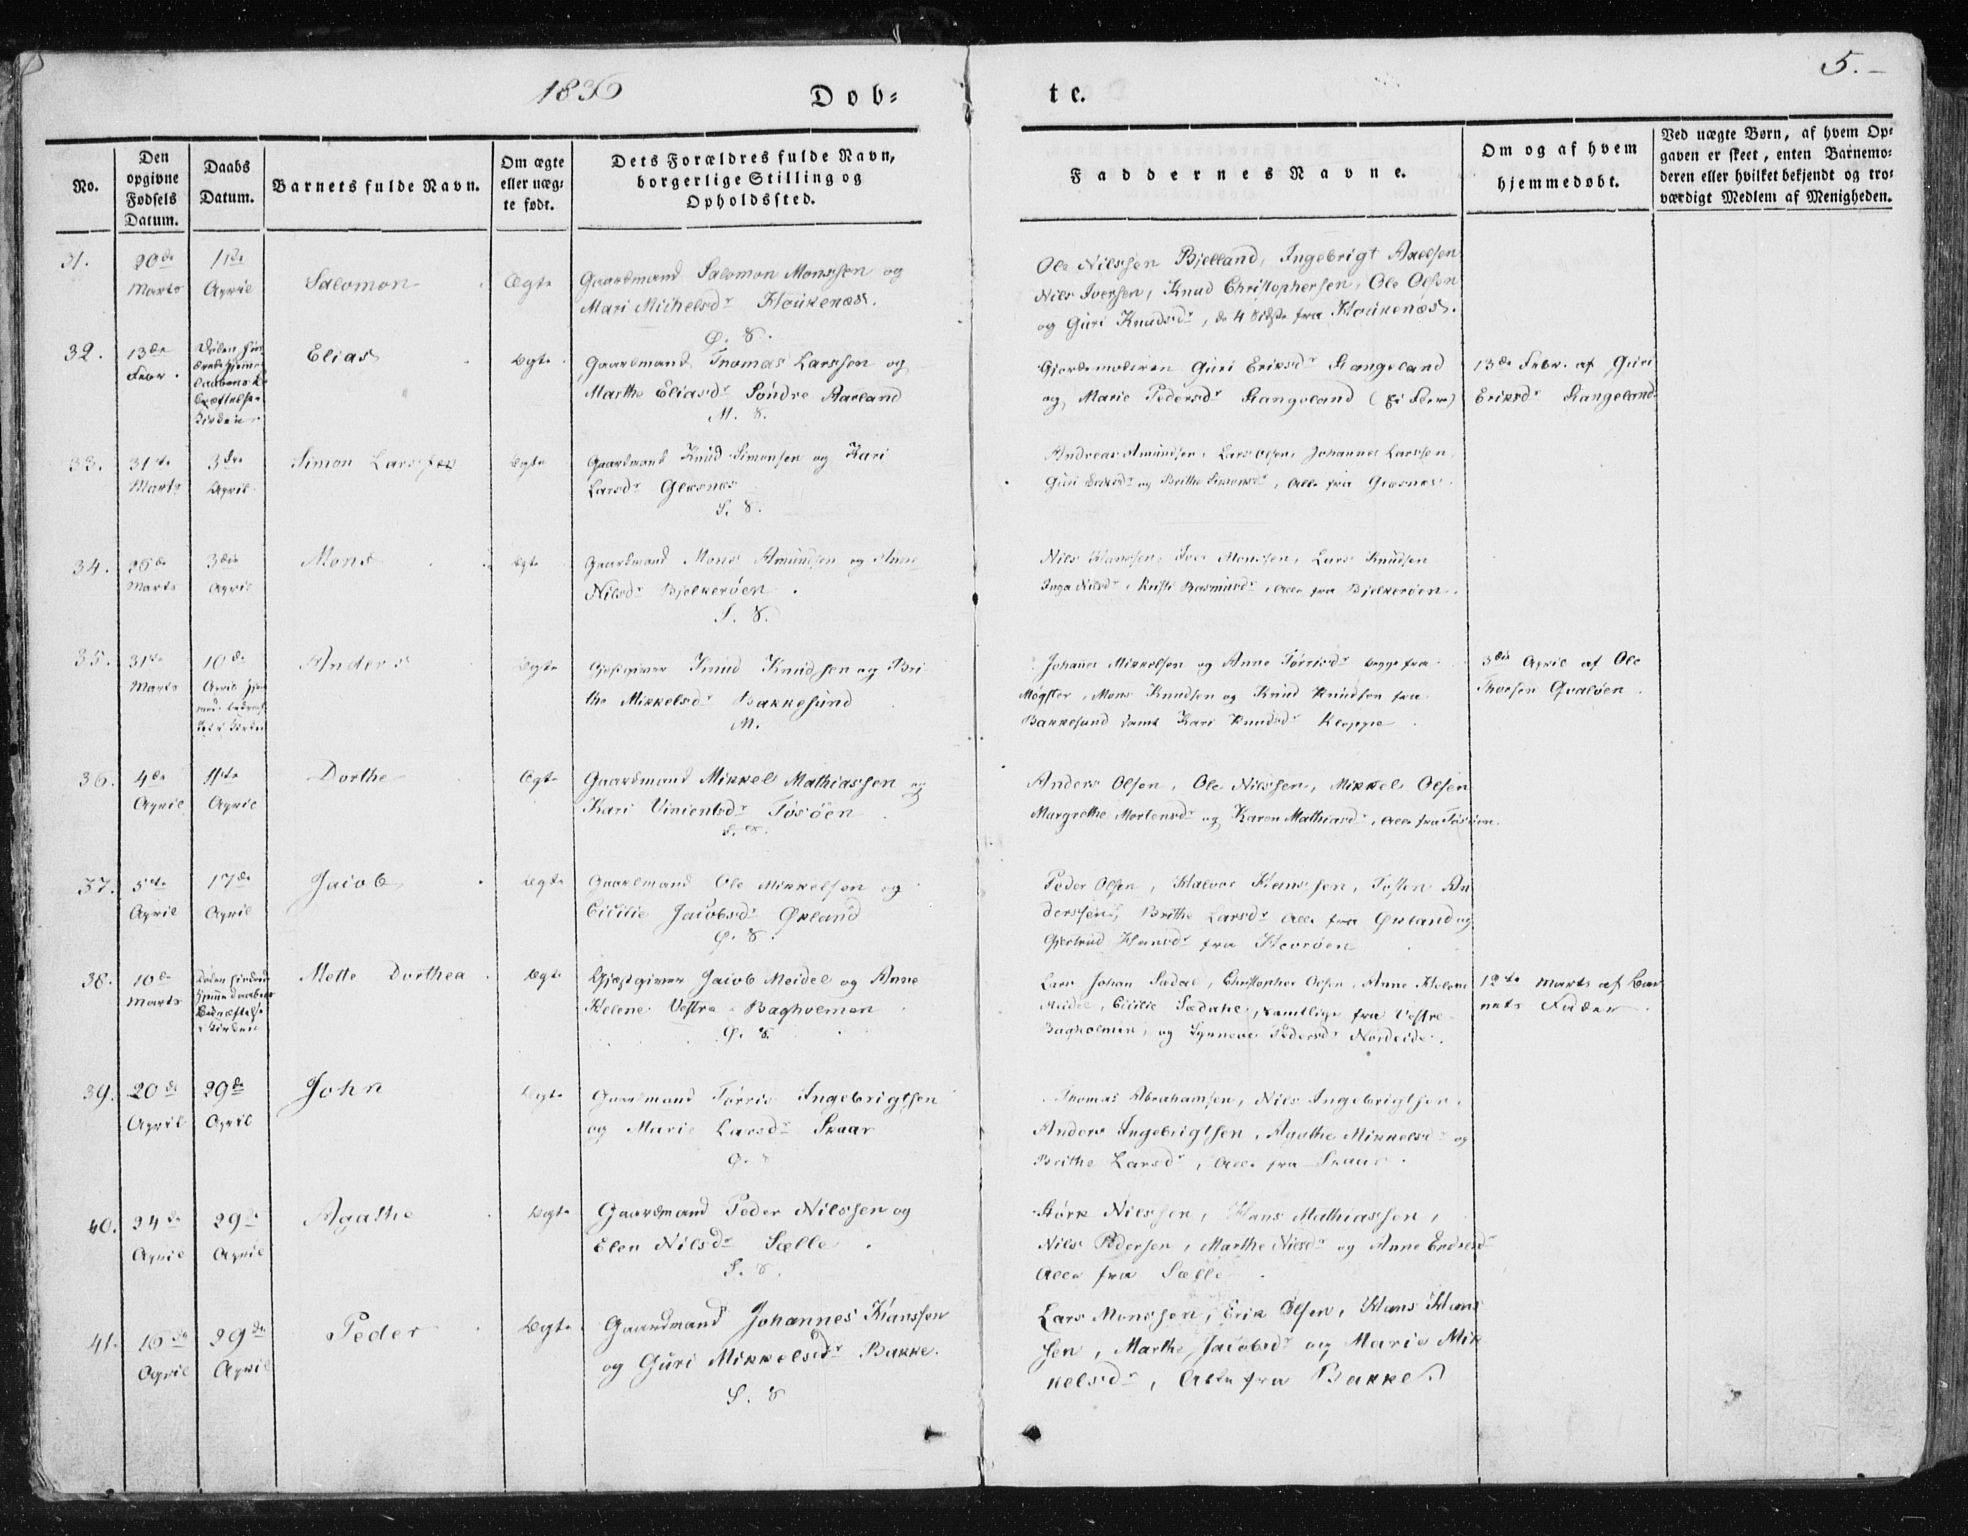 1836
Dob=
te.
5.
No.
Den opgivne Fødsels Datum.
Daabs Datum.
Barnets fulde Navn.
Om ægte eller uæg= te født.
Dets Forældres fulde Navn, borgerlige Stilling og Opholdssted.
Faddernes Navne.
Om og af hvem hjemmedøbt.
Ved uægte Børn, af hvem Op= gaven er skeet, enten Barnemo= deren eller hvilket bekjendt og tro= værdigt Medlem af Menigheden.
31.
20de Marts
1ste April
Salomon
Ægte
Gaardmand Salomon Monssen og
Mari Michelsdr Houkenæs.
Ø. S.
Ole Nilssen Bjelland, Ingebrigt Axelsen
Nils Iversen, Knud Christophersen, Ole Olsen
og Guri Knudsdr, de 4 sidste fra Houkenæs.
32.
13de Febr.
Elias
Ægte
Gaardmand Thomas Larssen og
Marthe Eliasdr Søndre Aarland
M. S.
Gjordemoderen Guri Eriksdr Stangeland
og Marie Pedersdr Stangeland (Ei Flere)
13de Febr. af Guri
Eriksdr Stangeland
33.
31te Marts
3die April
Simon Larssen
Ægte
Gaardmand Knud Simonsen og Kari
Larsdr Glesnes
S. S.
Andreas Amundsen, Lars Olsen, Johannes Larssen
Guri Eriksdr og Brithe Simonsdr, Alle fra Glesnes.
34.
26de Marts
3die April
Mons
Ægte
Gaardmand Mons Amundsen og Anne
Nilsdr Bjelkerøen.
S. S.
Nils Hanssen, Iver Monssen, Lars Knudsen
Inga Nilsdr, Kristi Rasmusdr, Alle fra Bjelkerøen.
35.
31te Marts
10de April
Anders
Ægte
Gjestgiver Knud Knudsen og Bri
the Mikkelsdr Bakkesund
M.
Johannes Mikkelsen og Anne Tørrisdr begge fra
Møgster, Mons Knudsen og Knud Knudsen fra
Bakkesund samt Kari Knudsdr Kleppe.
3die April af Ole
Thorsen Qvaløen.
36.
4de April
Dorthe
Ægte
Gaardmand Mikkel Mathiassen og
Kari Vincentsdr Tøsøen.
S. S.
Anders Olsen, Ole Nilssen, Mikkel Olsen
Margrethe Mortensdr og Karen Mathiasdr, Alle fra Tøsøen.
37.
5te April
17de April
Jacob
Ægte
Gaardmand Ole Mikkelsen og
Cicilie Jacobsdr Økland
Ø. S.
Peder Olsen, Halvor Hanssen, Tosten An
derssen, Brithe Larsdr Alle fra Økland og
Gjertrud Hansdr fra Storøen
38.
10de Marts
Mette Dorthea
Ægte
Gjæstgiver Jacob Meidel og Anne
Helene Vestre Bagholmen
Ø. S.
Lars Johan Sædal, Christopher Olsen, Anne Helene
Meidel, Cicilie Sædahl, samtlige fra Vestre
Bagholmen, og Synneve Pedersdr Nordeide.
12te Marts af Bar
nets Fader.
39.
20de April
29de April
John
Ægte
Gaardmand Tørris Ingebrigtsen
og Marie Larsdr Skaar
Ø. S
Thomas Abrahamsen, Nils Ingebrigtsen,
Anders Ingebrigtsen, Agathe Mikkelsdr og
Brithe Larsdr, Alle fra Skaar.
40.
24de April
29de April
Agathe
Ægte
Gaardmand Peder Nilssen og
Elen Nilsdr Sælle.
S. S.
Størk Nilssen, Hans Mathiassen,
Nils Pedersen, Marthe Nilsdr og Anne Endresdr
Alle fra Sælle.
41.
16de April
29de April
Peder
Ægte
Gaardmand Johannes Hanssen
og Guri Mikkelsdr Bakke.
S. S
Lars Monssen, Erik Olsen, Hans Hans
sen, Marthe Jacobsdr og Marie Mik
kelsdr, Alle fra Bakke.